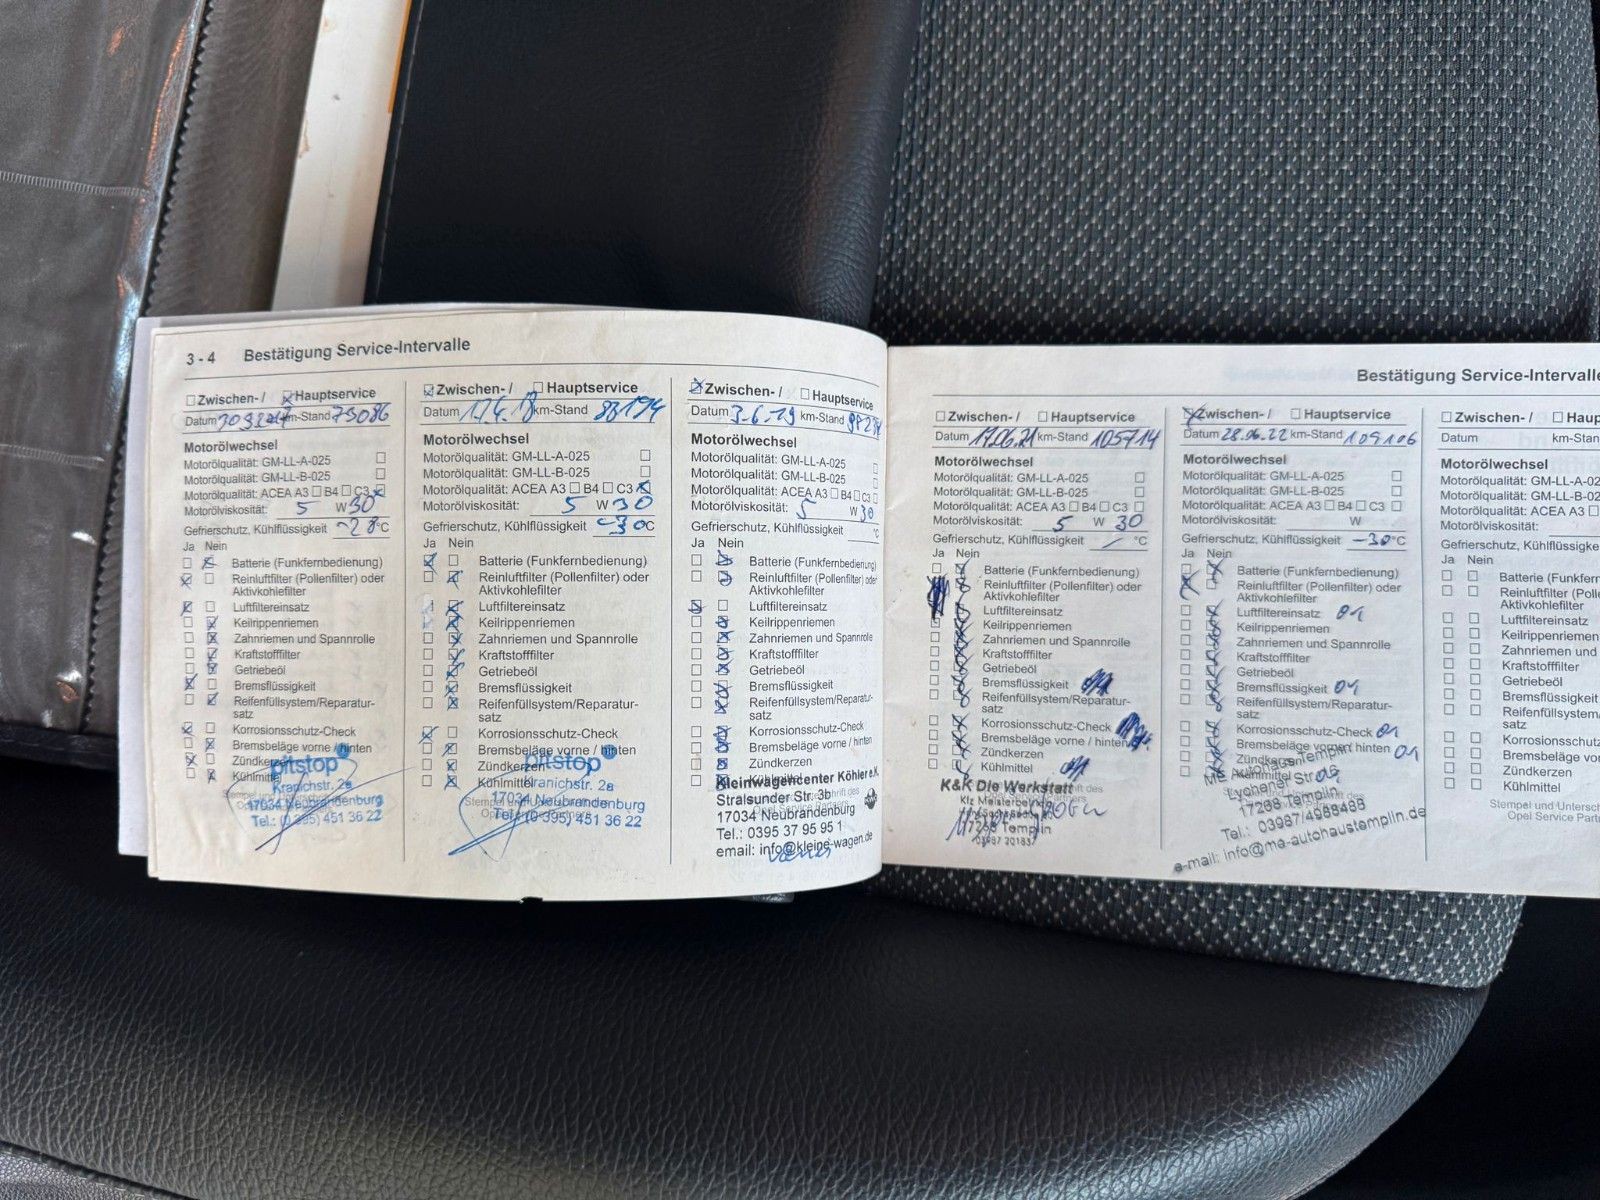 3 - 4 Bestätigung Service-Intervalle
Zwischen- / Hauptservice
Datum km-Stand 73086
Motorölwechsel
Motorölqualität: GM-LL-A-025
Motorölqualität: GM-LL-B-025
Motorölqualität: ACEA A3 B4 C3
Motorölviskosität: 5 W 30
Gefrierschutz, Kühlflüssigkeit -28 °C
Ja Nein
Batterie (Funkfernbedienung)
Reinluftfilter (Pollenfilter) oder
Aktivkohlefilter
Luftfiltereinsatz
Keilrippenriemen
Zahnriemen und Spannrolle
Kraftstofffilter
Getriebeöl
Bremsflüssigkeit
Reifenfüllsystem/Reparatur-
satz
Korrosionsschutz-Check
Bremsbeläge vorne / hinten
Zündkerzen
Kühlmittel
pitstop
Kranichstr. 2a
17034 Neubrandenburg
Tel.: (0 395) 451 36 22
Zwischen- / Hauptservice
Datum 17.4.18 km-Stand 83194
Motorölwechsel
Motorölqualität: GM-LL-A-025
Motorölqualität: GM-LL-B-025
Motorölqualität: ACEA A3 B4 C3
Motorölviskosität: 5 W 30
Gefrierschutz, Kühlflüssigkeit -30 °C
Ja Nein
Batterie (Funkfernbedienung)
Reinluftfilter (Pollenfilter) oder
Aktivkohlefilter
Luftfiltereinsatz
Keilrippenriemen
Zahnriemen und Spannrolle
Kraftstofffilter
Getriebeöl
Bremsflüssigkeit
Reifenfüllsystem/Reparatur-
satz
Korrosionsschutz-Check
Bremsbeläge vorne / hinten
Zündkerzen
Kühlmittel
pitstop
Kranichstr. 2a
17034 Neubrandenburg
Tel.: (0 395) 451 36 22
Zwischen- / Hauptservice
Datum 3-6.19 km-Stand
Motorölwechsel
Motorölqualität: GM-LL-A-025
Motorölqualität: GM-LL-B-025
Motorölqualität: ACEA A3 B4 C3
Motorölviskosität: 5 W 30
Gefrierschutz, Kühlflüssigkeit °C
Ja Nein
Batterie (Funkfernbedienung)
Reinluftfilter (Pollenfilter) oder
Aktivkohlefilter
Luftfiltereinsatz
Keilrippenriemen
Zahnriemen und Spannrolle
Kraftstofffilter
Getriebeöl
Bremsflüssigkeit
Reifenfüllsystem/Reparatur-
satz
Korrosionsschutz-Check
Bremsbeläge vorne / hinten
Zündkerzen
Kühlmittel
Kleinwagencenter Köhler e.K.
Stralsunder Str. 3b
17034 Neubrandenburg
Tel.: 0395 37 95 95 1
email: info@kleine-wagen.de
Bestätigung Service-Intervalle
Zwischen- / Hauptservice
Datum 17.06.21 km-Stand 105714
Motorölwechsel
Motorölqualität: GM-LL-A-025
Motorölqualität: GM-LL-B-025
Motorölqualität: ACEA A3 B4 C3
Motorölviskosität: 5 W 30
Gefrierschutz, Kühlflüssigkeit °C
Ja Nein
Batterie (Funkfernbedienung)
Reinluftfilter (Pollenfilter) oder
Aktivkohlefilter
Luftfiltereinsatz
Keilrippenriemen
Zahnriemen und Spannrolle
Kraftstofffilter
Getriebeöl
Bremsflüssigkeit
Reifenfüllsystem/Reparatur-
satz
Korrosionsschutz-Check
Bremsbeläge vorne / hinten
Zündkerzen
Kühlmittel
K&K Die Werkstatt
Kfz Meisterbetrieb
17268 Templin
Zwischen- / Hauptservice
Datum 28.06.22 km-Stand 109106
Motorölwechsel
Motorölqualität: GM-LL-A-025
Motorölqualität: GM-LL-B-025
Motorölqualität: ACEA A3 B4 C3
Motorölviskosität: W
Gefrierschutz, Kühlflüssigkeit -30 °C
Ja Nein
Batterie (Funkfernbedienung)
Reinluftfilter (Pollenfilter) oder
Aktivkohlefilter
Luftfiltereinsatz
Keilrippenriemen
Zahnriemen und Spannrolle
Kraftstofffilter
Getriebeöl
Bremsflüssigkeit
Reifenfüllsystem/Reparatur-
satz
Korrosionsschutz-Check
Bremsbeläge vorne / hinten
Zündkerzen
Kühlmittel
Autohaus Templin
Lychener Str.
17268 Templin
Tel.: 03987/4988488
e-mail: info@ma-autohaustemplin.de
Zwischen- / Haup
Datum km-Stand
Motorölwechsel
Motorölqualität: GM-LL-A-02
Motorölqualität: GM-LL-B-02
Motorölqualität: ACEA A3
Motorölviskosität:
Gefrierschutz, Kühlflüssigke
Ja Nein
Batterie (Funkfern
Reinluftfilter (Polle
Aktivkohlefilter
Luftfiltereinsatz
Keilrippenriemen
Zahnriemen und
Kraftstofffilter
Getriebeöl
Bremsflüssigkeit
Reifenfüllsystem/
satz
Korrosionsschutz
Bremsbeläge vo
Zündkerzen
Kühlmittel
Stempel und Untersch
Opel Service Part